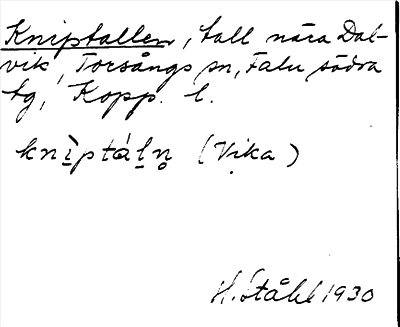 Kniptallen, tall nära Dal-
vik, Torsångs sn, Falu södra
tg, Kopp. l.
knìptáḻṇ̥ (Vika)
H. Ståhl 1930